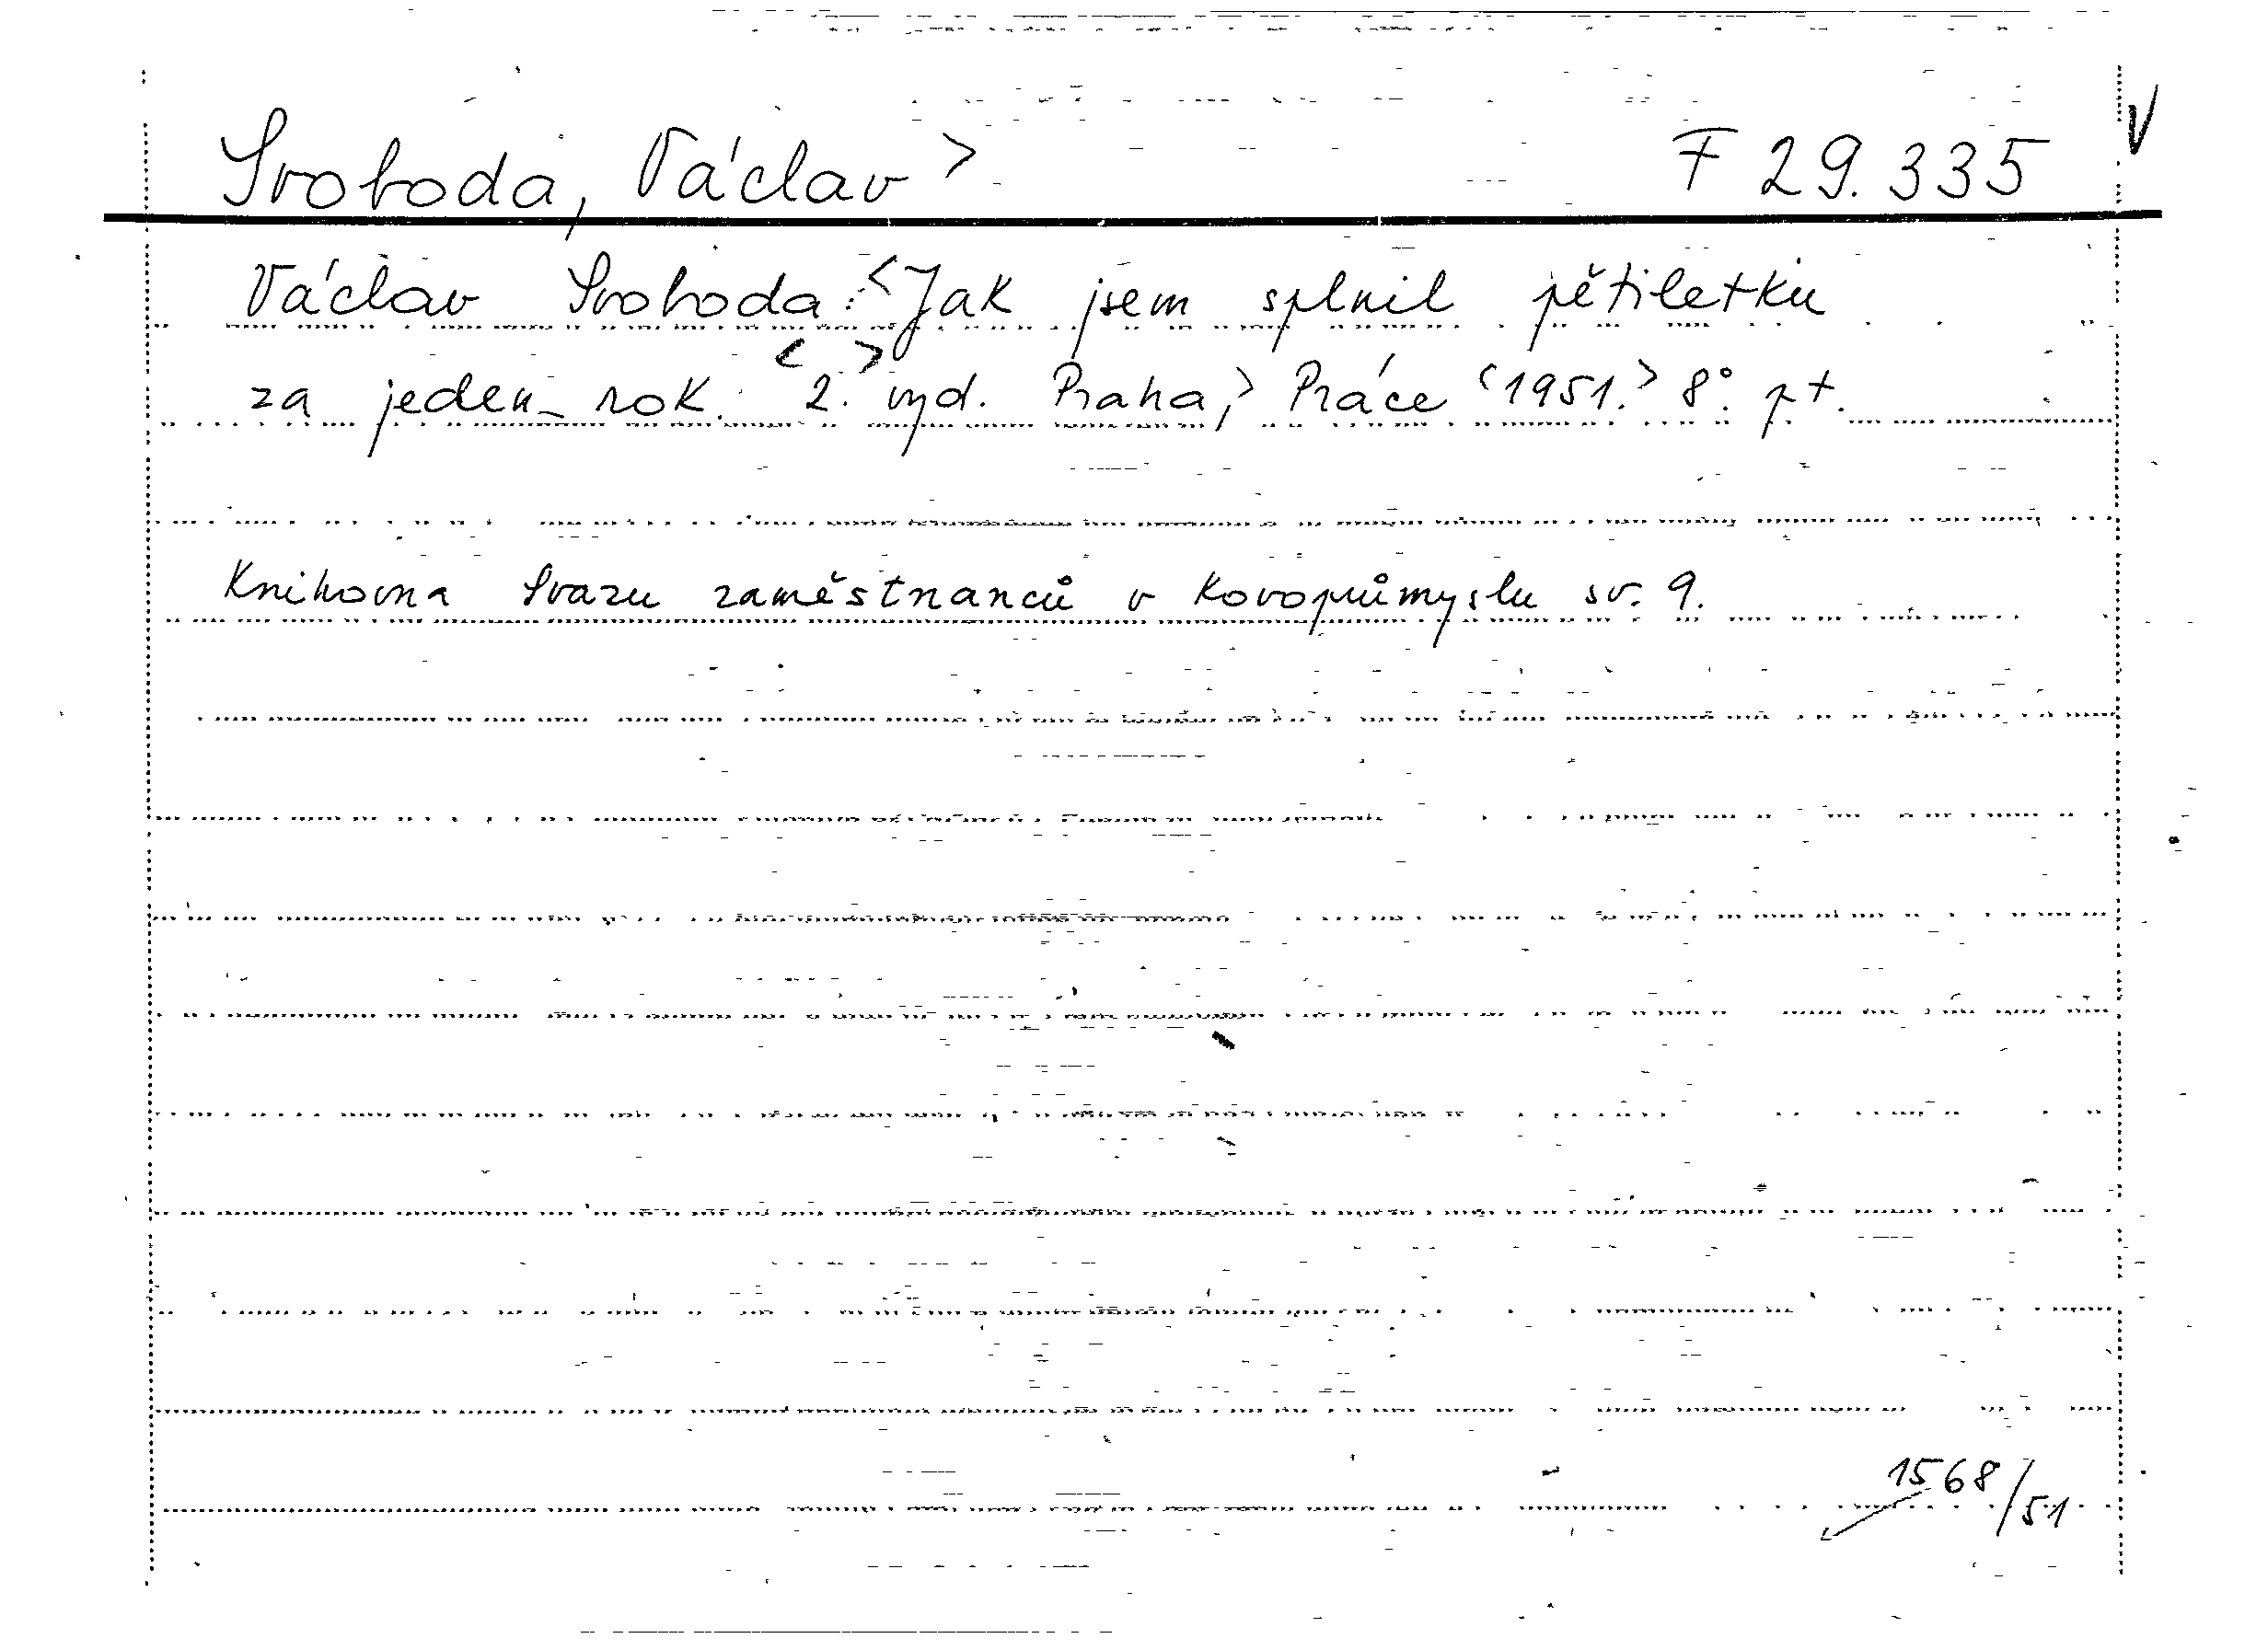 Svoboda, Václav > F 29.335 V
Václav Svoboda: <Jak jsem splnil pětiletku
za jeden rok. <2.> vyd. Praha,> Práce <1951.> 8°. pt.
Knihovna Svazu zaměstnanců v kovoprůmyslu sv. 9.
1568/51